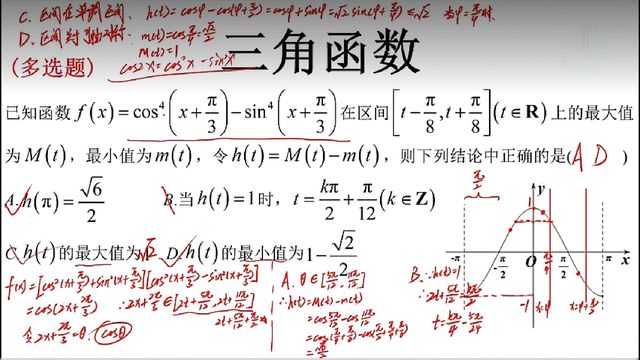 C. 区间在单调区间, h(t)=cosφ-cos(φ+π/2)=cosφ+sinφ=√2 sin(φ+π/4)≤√2 当φ=π/4时.
D. 区间关于轴对称, m(t)=cosπ/4=√2/2
M(t)=1
(多选题)
cos2x=cos²x-sin²x
三角函数
已知函数 f(x)=cos⁴(x+π/3)-sin⁴(x+π/3)在区间[t-π/8,t+π/8](t∈R)上的最大值
为M(t),最小值为m(t),令h(t)=M(t)-m(t),则下列结论中正确的是( A D )
A.h(π)=√6/2 B.当h(t)=1时,t=kπ/2+π/12(k∈Z)
C.h(t)的最大值为√2 D.h(t)的最小值为1-√2/2
f(x)=[cos²(x+π/3)+sin²(x+π/3)][cos²(x+π/3)-sin²(x+π/3)]
=cos(2x+2π/3)
∴2x+2π/3∈[2t+5π/12,2t+11π/12]
令2x+2π/3=θ. cosθ
A. θ∈[5π/12,11π/12]
∴h(t)=M(t)-m(t)
=cos5π/12-cos11π/12
=√6/2
B. ∵h(t)=1
∴2t+5π/12=kπ/2
t=kπ/4-5π/24
π/2
y
1
-π
-π/2
O
π/4
π/2
π
x
-1
x=φ
x=φ+π/2